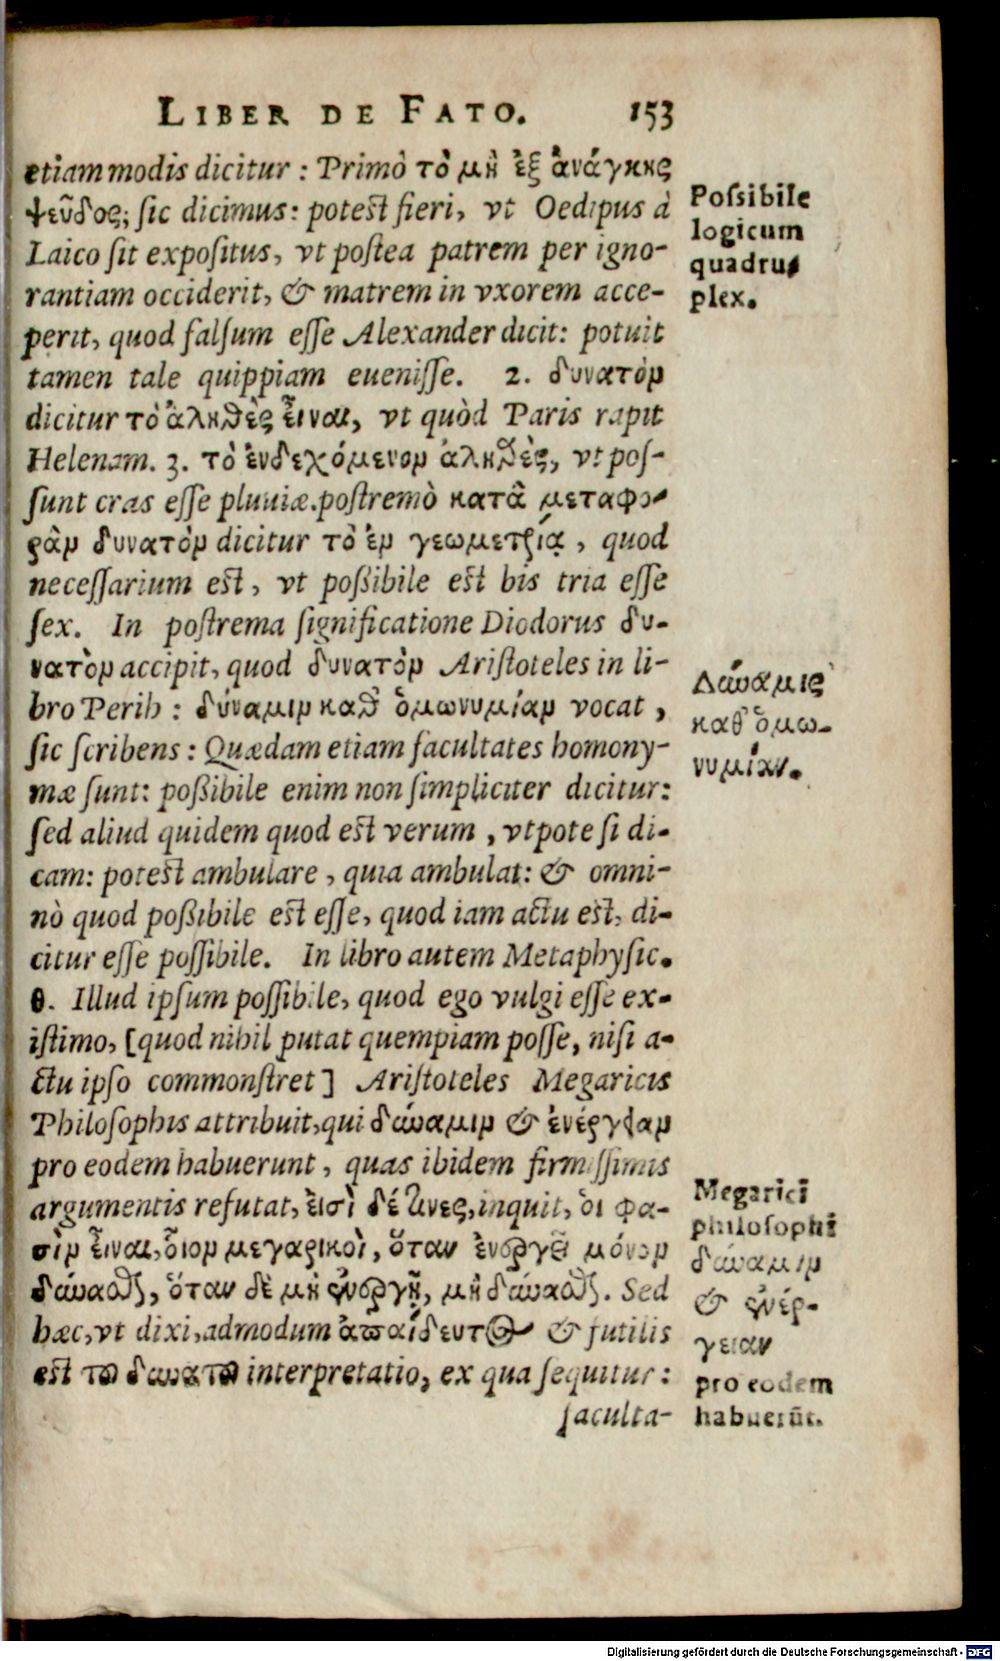 LIBER DE FATO. 153
etiam modis dicitur : Primò τὸ μὴ ἐξ ἀνάγκης
ψεῦδος; sic dicimus: potest fieri, vt Oedipus à
Laico sit expositus, vt postea patrem per igno-
rantiam occiderit, & matrem in vxorem acce-
perit, quod falsum esse Alexander dicit: potuit
tamen tale quippiam euenisse. 2. δυνατὸν
dicitur τὸ ἀληθὲς εἶναι, vt quòd Paris rapit
Helenam. 3. τὸ ἐνδεχόμενον ἀληθὲς, vt pos-
sunt cras esse pluuiæ. postremò κατὰ μεταφο-
ρὰν δυνατὸν dicitur τὸ ἐν γεωμετρίᾳ, quod
necessarium est, vt possibile est bis tria esse
sex. In postrema significatione Diodorus δυ-
νατὸν accipit, quod δυνατὸν Aristoteles in li-
bro Perih : δύναμιν καθ ὁμωνυμίαν vocat,
sic scribens : Quædam etiam facultates homony-
mæ sunt: possibile enim non simpliciter dicitur:
sed aliud quidem quod est verum, vtpote si di-
cam: potest ambulare, quia ambulat: & omni-
nò quod possibile est esse, quod iam actu est, di-
citur esse possibile. In libro autem Metaphysic.
θ. Illud ipsum possibile, quod ego vulgi esse ex-
istimo, [quod nihil putat quempiam posse, nisi a-
ctu ipso commonstret] Aristoteles Megaricis
Philosophis attribuit, qui δύναμιν & ἐνέργειαν
pro eodem habuerunt, quas ibidem firmissimis
argumentis refutat, εἰσὶ δέ τινες, inquit, οἱ φα-
σὶν εἶναι, οἷον μεγαρικοὶ, ὅταν ἐνεργῇ μόνον
δύνασθαι, ὅταν δὲ μὴ ἐνεργῇ, μὴ δύνασθαι. Sed
hæc, vt dixi, admodum ἀπαίδευτος & futilis
est τῶ δυνατῶ interpretatio, ex qua sequitur :
faculta-
Possibile
logicum
quadru-
plex.
Δύναμις
καθ' ὁμω-
νυμίαν.
Megarici
philosophi
δύναμιν
& ἐνέρ-
γειαν
pro eodem
habuerūt.
Digitalisierung gefördert durch die Deutsche Forschungsgemeinschaft - DFG